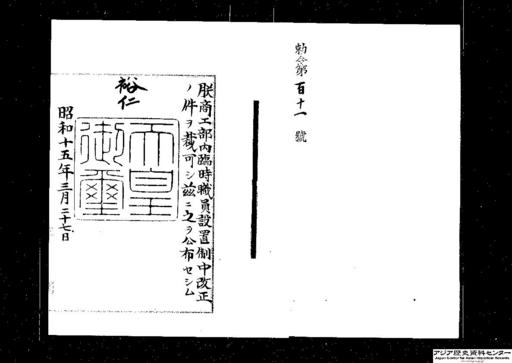 勅令第百十一號
朕商工部内臨時職員設置制中改正
ノ件ヲ裁可シ茲ニ之ヲ公布セシム
裕仁
天皇
御璽
昭和十五年三月二十七日
アジア歴史資料センター
Japan Center for Asian Historical Records